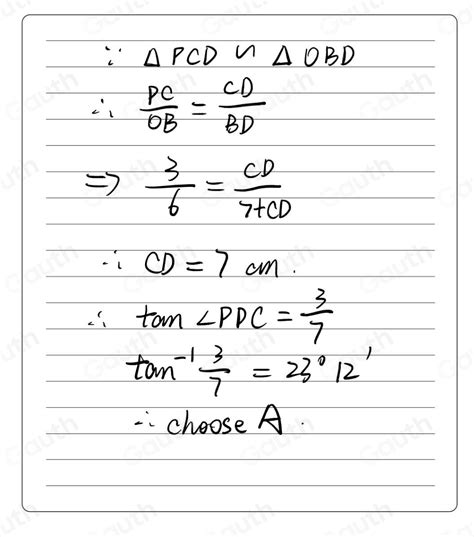 ∵ △PCD ∽ △OBD
∴ PC/OB = CD/BD
⇒ 3/6 = CD/7+CD
∴ CD = 7 cm.
∴ tan ∠PDC = 3/7
tan⁻¹ 3/7 = 23°12'
∴ choose A.